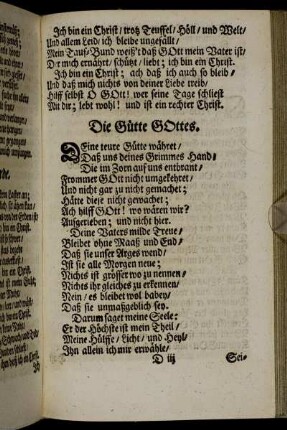 Ich bin ein Christ/ trotz Teuffel/ Höll/ und Welt/
Und allem Leid/ ich bleibe ungefällt/
Mein Tauf-Bund weiß't daß GOtt mein Vater ist/
Der mich ernährt/ schützt/ liebt; ich bin ein Christ.
Ich bin ein Christ; ach daß ich auch so bleib/
Und daß mich nichts von deiner Liebe treib/
Hilf selbst O GOtt! wer seine Tage schliest
Mit dir; lebt wohl! und ist ein rechter Christ.
Die Gütte GOttes.
DEine teure Gütte währet/
Daß uns deines Grimmes Hand/
Die im Zorn auf uns entbrant/
Frommer GOtt nicht umgekehret/
Und nicht gar zu nicht gemachet;
Hätte diese nicht gewachet;
Ach hilff GOtt! wo wären wir?
Aufgerieben; und nicht hier.
Deine Vaters milde Treue/
Bleibet ohne Maaß und End/
Daß sie unser Arges wend/
Ist sie alle Morgen neue;
Nichts ist grösser wo zu nennen/
Nichts ihr gleiches zu erkennen/
Nein/ es bleibet wol dabey/
Daß sie unmaßgeblich sey.
Darum saget meine Seele:
Er der Höchste ist mein Theil/
Meine Hülffe/ Licht/ und Heyl/
Ihn allein ich mir erwähle/
D iij
Sei-